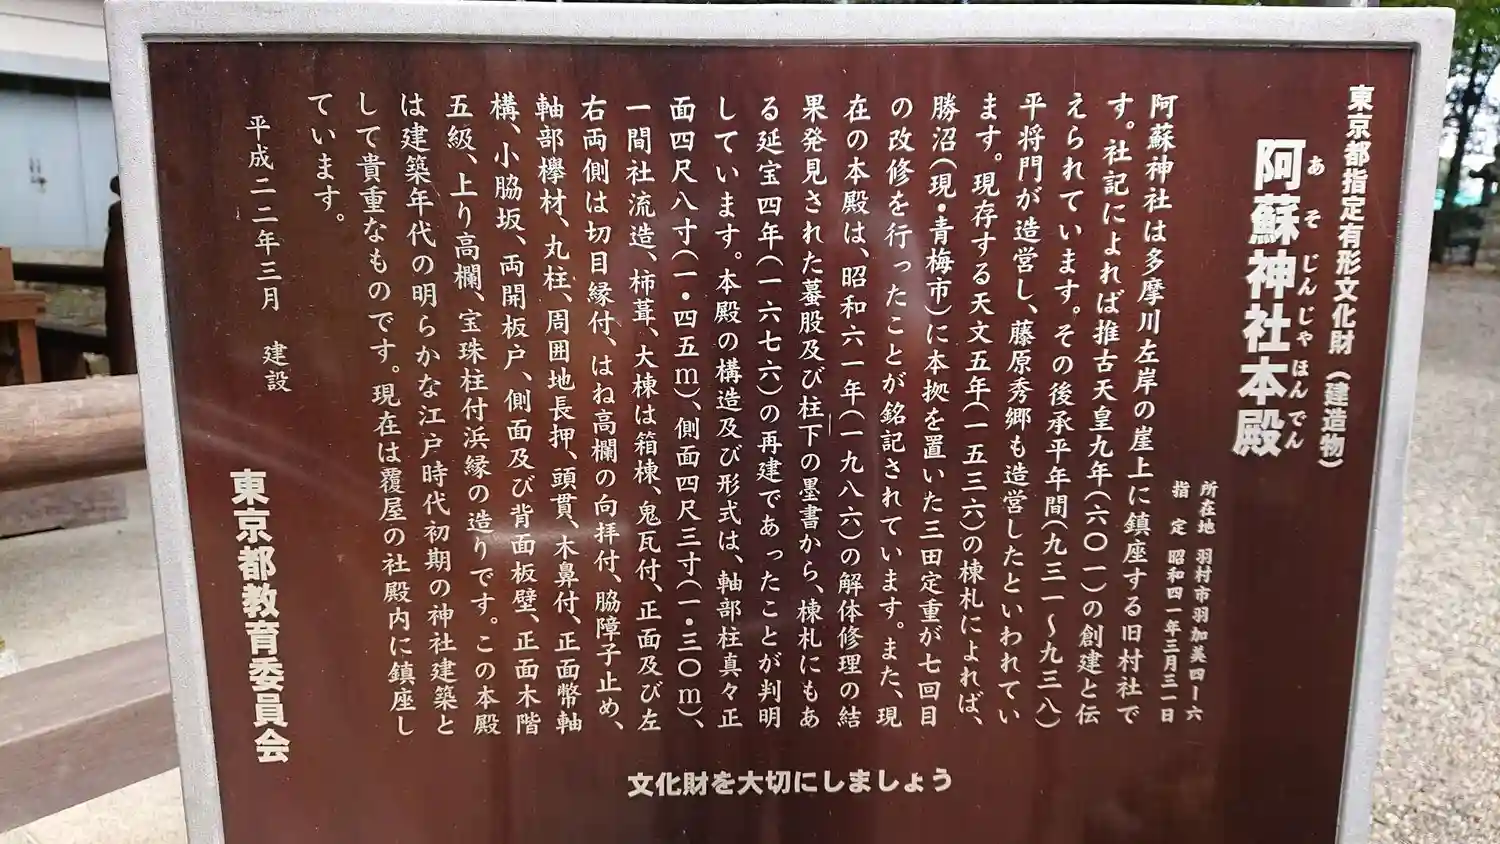 東京都指定有形文化財（建造物）
阿蘇神社本殿
あそじんじゃほんでん
所在地 羽村市羽加美四ー六
指定 昭和四一年三月三一日
阿蘇神社は多摩川左岸の崖上に鎮座する旧村社で
す。社記によれば推古天皇九年（六〇一）の創建と伝
えられています。その後承平年間（九三一～九三八）
平将門が造営し、藤原秀郷も造営したといわれてい
ます。現存する天文五年（一五三六）の棟札によれば、
勝沼（現・青梅市）に本拠を置いた三田定重が七回目
の改修を行ったことが銘記されています。また、現
在の本殿は、昭和六一年（一九八六）の解体修理の結
果発見された蟇股及び柱下の墨書から、棟札にもあ
る延宝四年（一六七六）の再建であったことが判明
しています。本殿の構造及び形式は、軸部柱真々正
面四尺八寸（一・四五ｍ）、側面四尺三寸（一・三〇ｍ）、
一間社流造、柿葺、大棟は箱棟、鬼瓦付、正面及び左
右両側は切目縁付、はね高欄の向拝付、脇障子止め、
軸部欅材、丸柱、周囲地長押、頭貫、木鼻付、正面幣軸
構、小脇坂、両開板戸、側面及び背面板壁、正面木階
五級、上り高欄、宝珠柱付浜縁の造りです。この本殿
は建築年代の明らかな江戸時代初期の神社建築と
して貴重なものです。現在は覆屋の社殿内に鎮座し
ています。
平成二二年三月 建設
東京都教育委員会
文化財を大切にしましょう